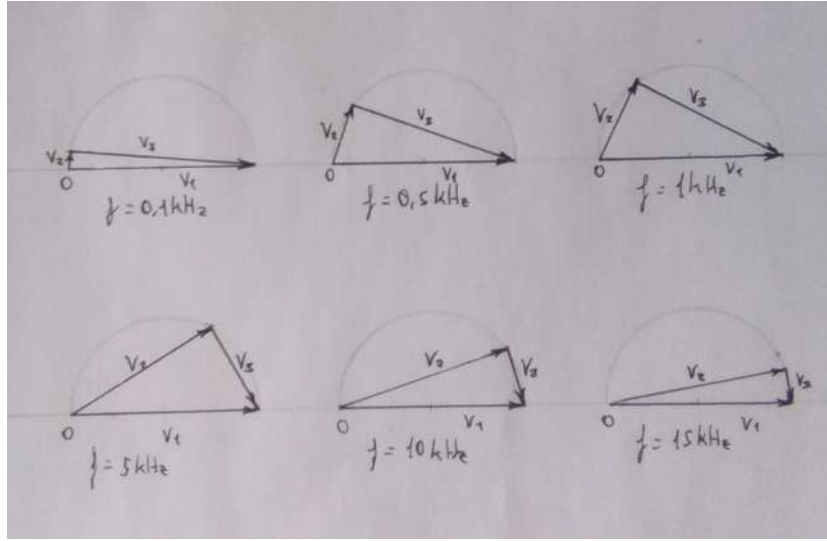 V₂ V₃
0 V₁
f = 0,1 kHz
V₂ V₃
0 V₁
f = 0,5 kHz
V₂ V₃
0 V₁
f = 1 kHz
V₂ V₃
0 V₁
f = 5 kHz
V₂ V₃
0 V₁
f = 10 kHz
V₂ V₃
0 V₁
f = 15 kHz